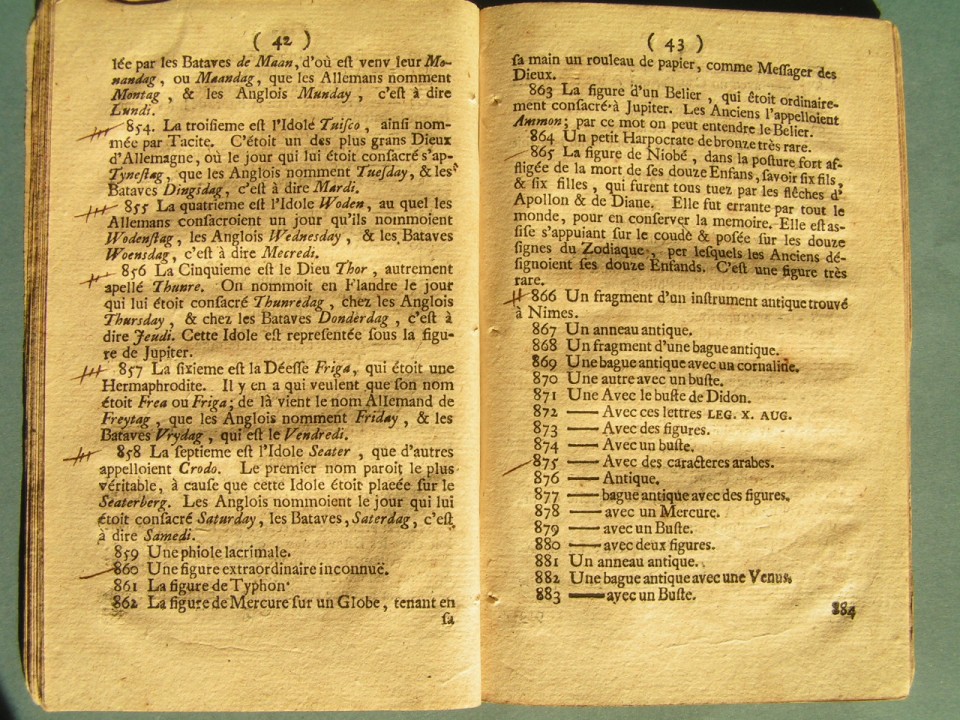 ( 42 )
lée par les Bataves de Maan, d'où eſt venv leur Mo-
nandag, ou Maandag, que les Allemans nomment
Montag, & les Anglois Munday, c'eſt à dire
Lundi.
854. La troiſieme eſt l'Idole Tuiſco, ainſi nom-
mée par Tacite. C'étoit un des plus grans Dieux
d'Allemagne, où le jour qui lui étoit conſacré s'ap-
Tyneſtag, que les Anglois nomment Tueſday, & les
Bataves Dingsdag, c'eſt à dire Mardi.
855 La quatrieme eſt l'Idole Woden, au quel les
Allemans conſacroient un jour qu'ils nommoient
Wodenſtag, les Anglois Wedneſday, & les Bataves
Woensdag, c'eſt à dire Mecredi.
856 La Cinquieme eſt le Dieu Thor, autrement
apellé Thunre. On nommoit en Flandre le jour
qui lui étoit conſacré Thunredag, chez les Anglois
Thursday, & chez les Bataves Donderdag, c'eſt à
dire Jeudi. Cette Idole eſt repreſentée ſous la figu-
re de Jupiter.
857 La ſixieme eſt la Déeſſe Friga, qui étoit une
Hermaphrodite. Il y en a qui veulent que ſon nom
étoit Frea ou Friga; de là vient le nom Allemand de
Freytag, que les Anglois nomment Friday, & les
Bataves Vrydag, qui eſt le Vendredi.
858 La ſeptieme eſt l'Idole Seater, que d'autres
appelloient Crodo. Le premier nom paroit le plus
véritable, à cauſe que cette Idole étoit placée ſur le
Seaterberg. Les Anglois nommoient le jour qui lui
étoit conſacré Saturday, les Bataves, Saterdag, c'eſt
à dire Samedi.
859 Une phiole lacrimale.
860 Une figure extraordinaire inconnuë.
861 La figure de Typhon
862 La figure de Mercure ſur un Globe, tenant en
ſa
( 43 )
ſa main un rouleau de papier, comme Meſſager des
Dieux.
863 La figure d'un Belier, qui étoit ordinaire-
ment conſacré à Jupiter. Les Anciens l'appelloient
Ammon; par ce mot on peut entendre le Belier.
864 Un petit Harpocrate de bronze très rare.
865 La figure de Niobé, dans la poſture fort af-
fligée de la mort de ſes douze Enfans, ſavoir ſix fils,
& ſix filles, qui furent tous tuez par les flêches d'
Apollon & de Diane. Elle fut errante par tout le
monde, pour en conſerver la memoire. Elle eſt as-
ſiſe s'appuiant ſur le coude & poſée ſur les douze
ſignes du Zodiaque, per leſquels les Anciens dé-
ſignoient ſes douze Enfands. C'eſt une figure très
rare.
866 Un fragment d'un inſtrument antique trouvé
à Nimes.
867 Un anneau antique.
868 Un fragment d'une bague antique.
869 Une bague antique avec un cornaline.
870 Une autre avec un buſte.
871 Une Avec le buſte de Didon.
872 — Avec ces lettres LEG. X. AUG.
873 — Avec des figures.
874 — Avec un buſte.
875 — Avec des caracteres arabes.
876 — Antique.
877 — bague antique avec des figures.
878 — avec un Mercure.
879 — avec un Buſte.
880 — avec deux figures.
881 Un anneau antique.
882 Une bague antique avec une Venus.
883 — avec un Buſte.
884